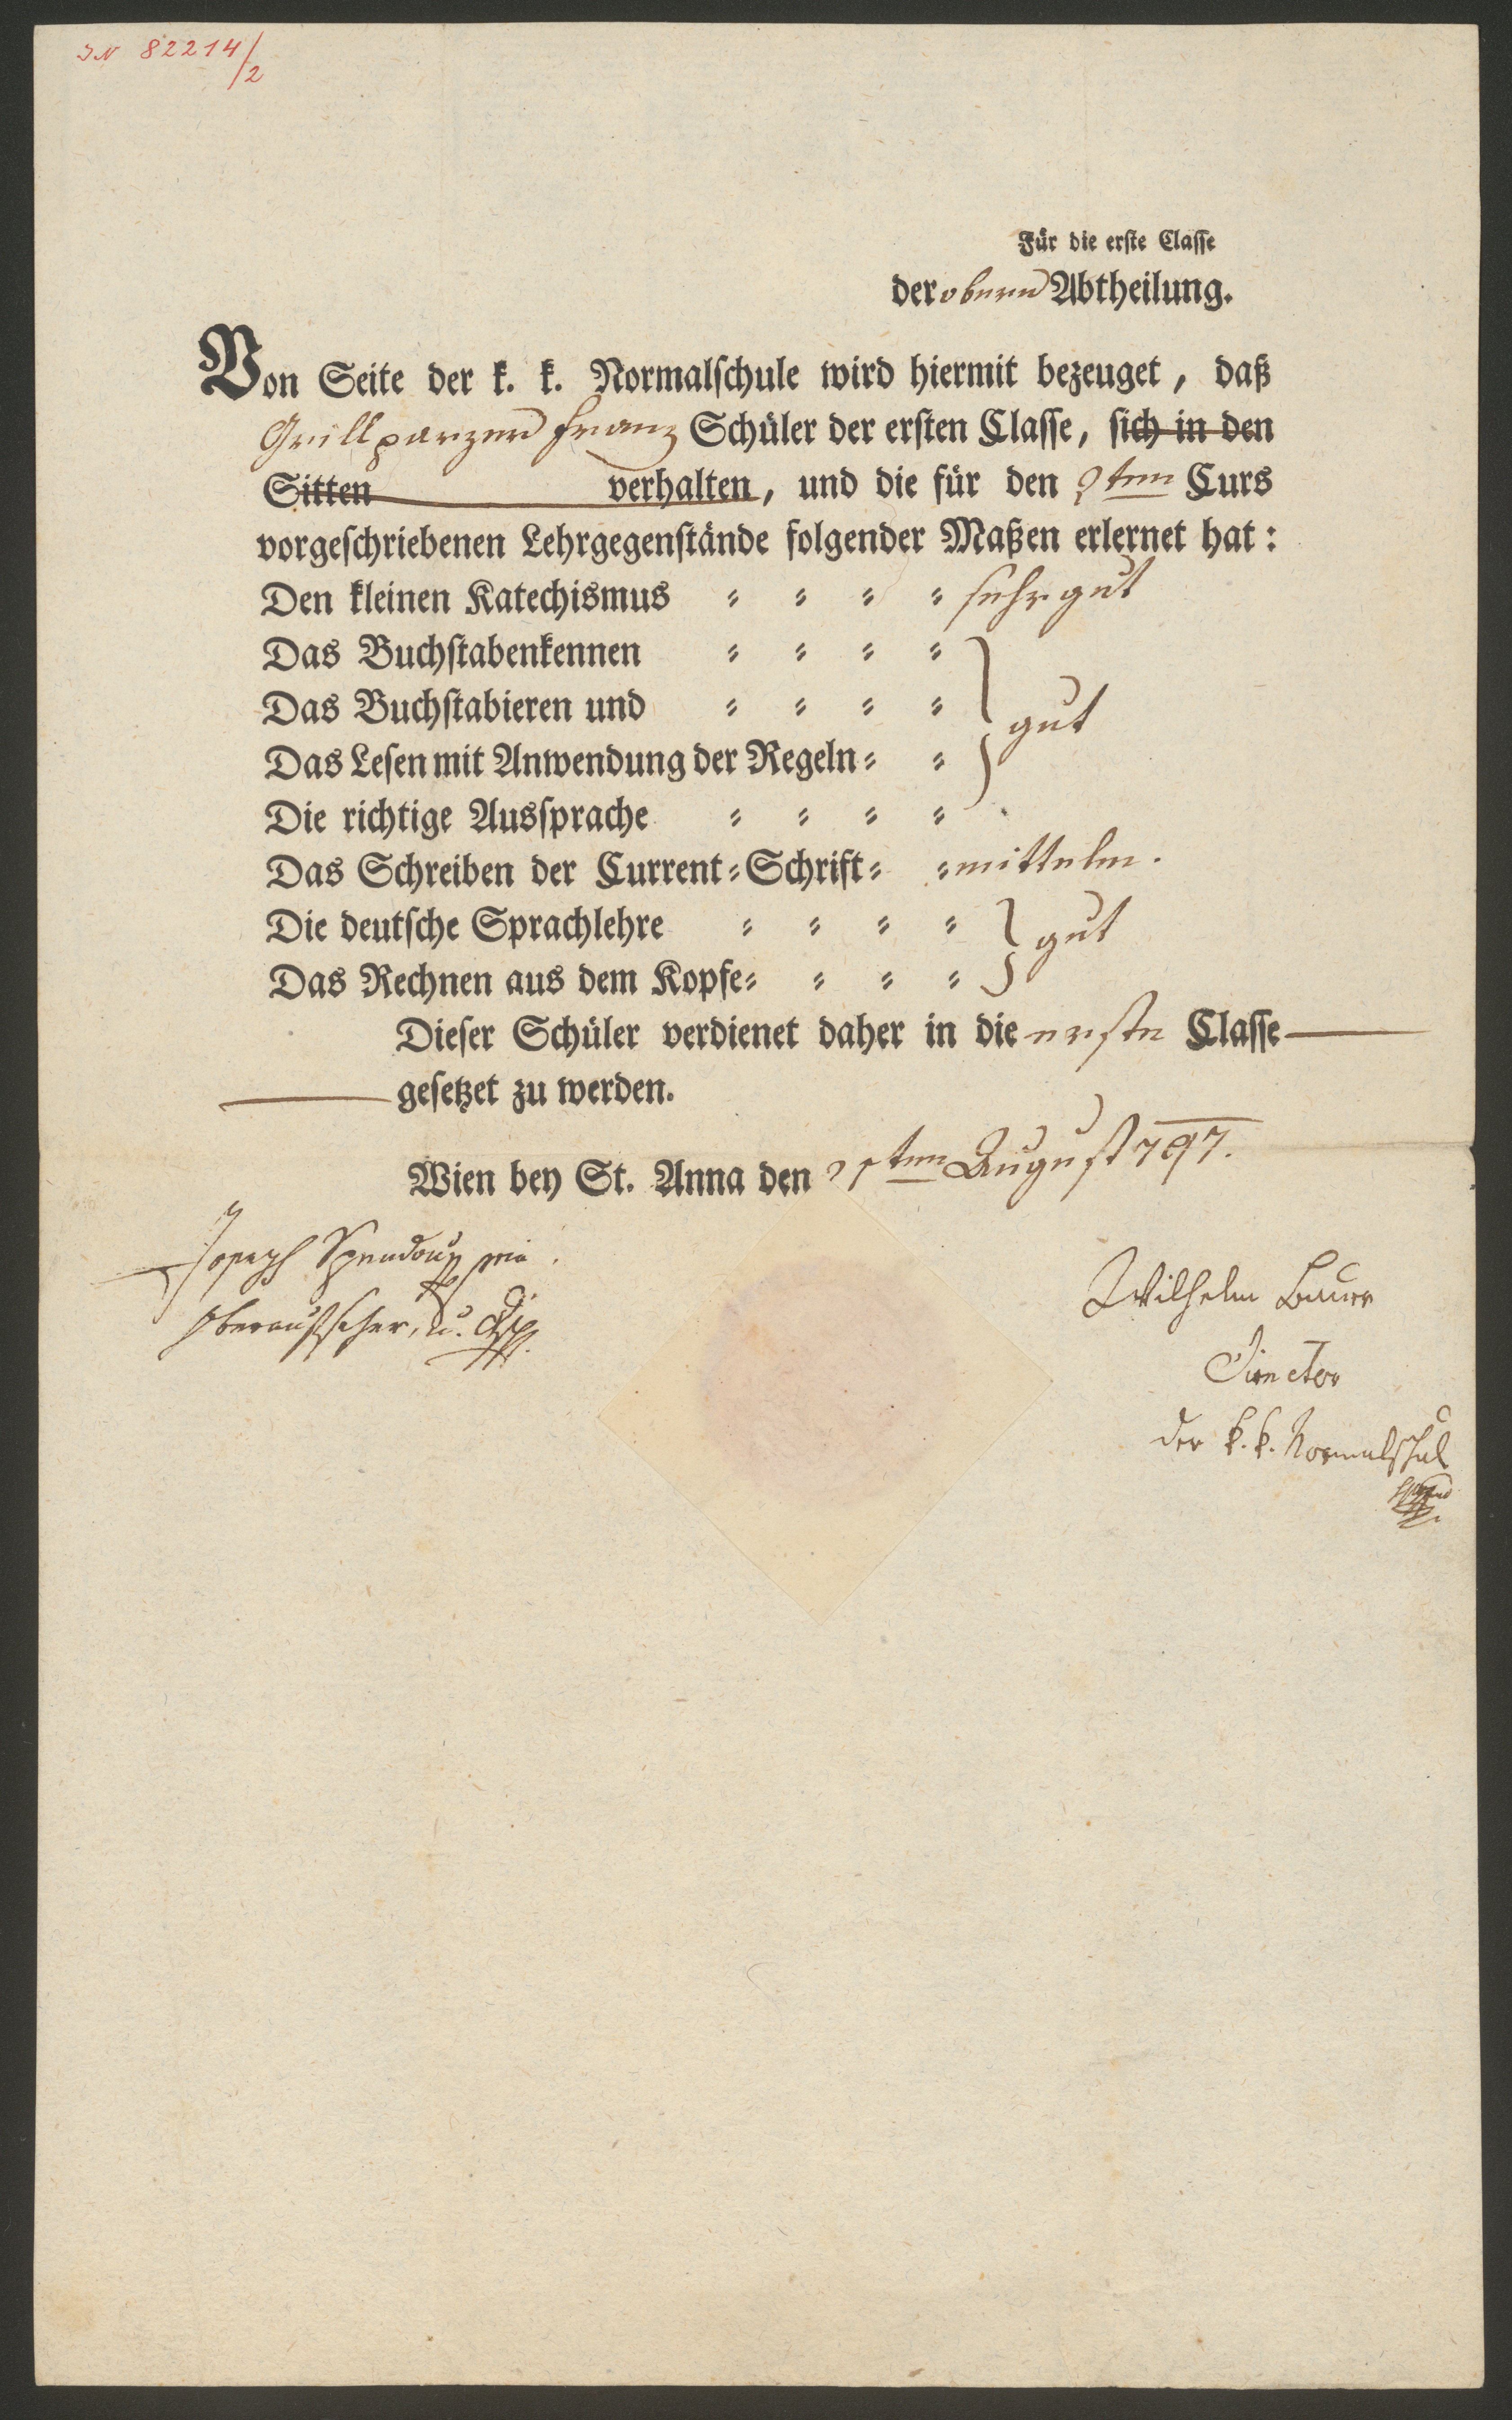 IN 82214/2
Für die erste Classe
der obern Abtheilung.
Von Seite der k. k. Normalschule wird hiermit bezeuget, daß
Grillparzer Franz Schüler der ersten Classe, sich in den
Sitten verhalten, und die für den 2ten Curs
vorgeschriebenen Lehrgegenstände folgender Maßen erlernet hat:
Den kleinen Katechismus = = = = sehr gut
Das Buchstabenkennen = = = =
Das Buchstabieren und = = = =
gut
Das Lesen mit Anwendung der Regeln= =
Die richtige Aussprache = = = =
Das Schreiben der Current=Schrift= = mittelm.
Die deutsche Sprachlehre = = = =
gut
Das Rechnen aus dem Kopfe= = = =
Dieser Schüler verdienet daher in die erste Classe
gesetzet zu werden.
Wien bey St. Anna den August 797.
Joseph Spendou mia
Oberaufseher, u.
Wilhelm Bauer
Director
der k. k. Normalschul